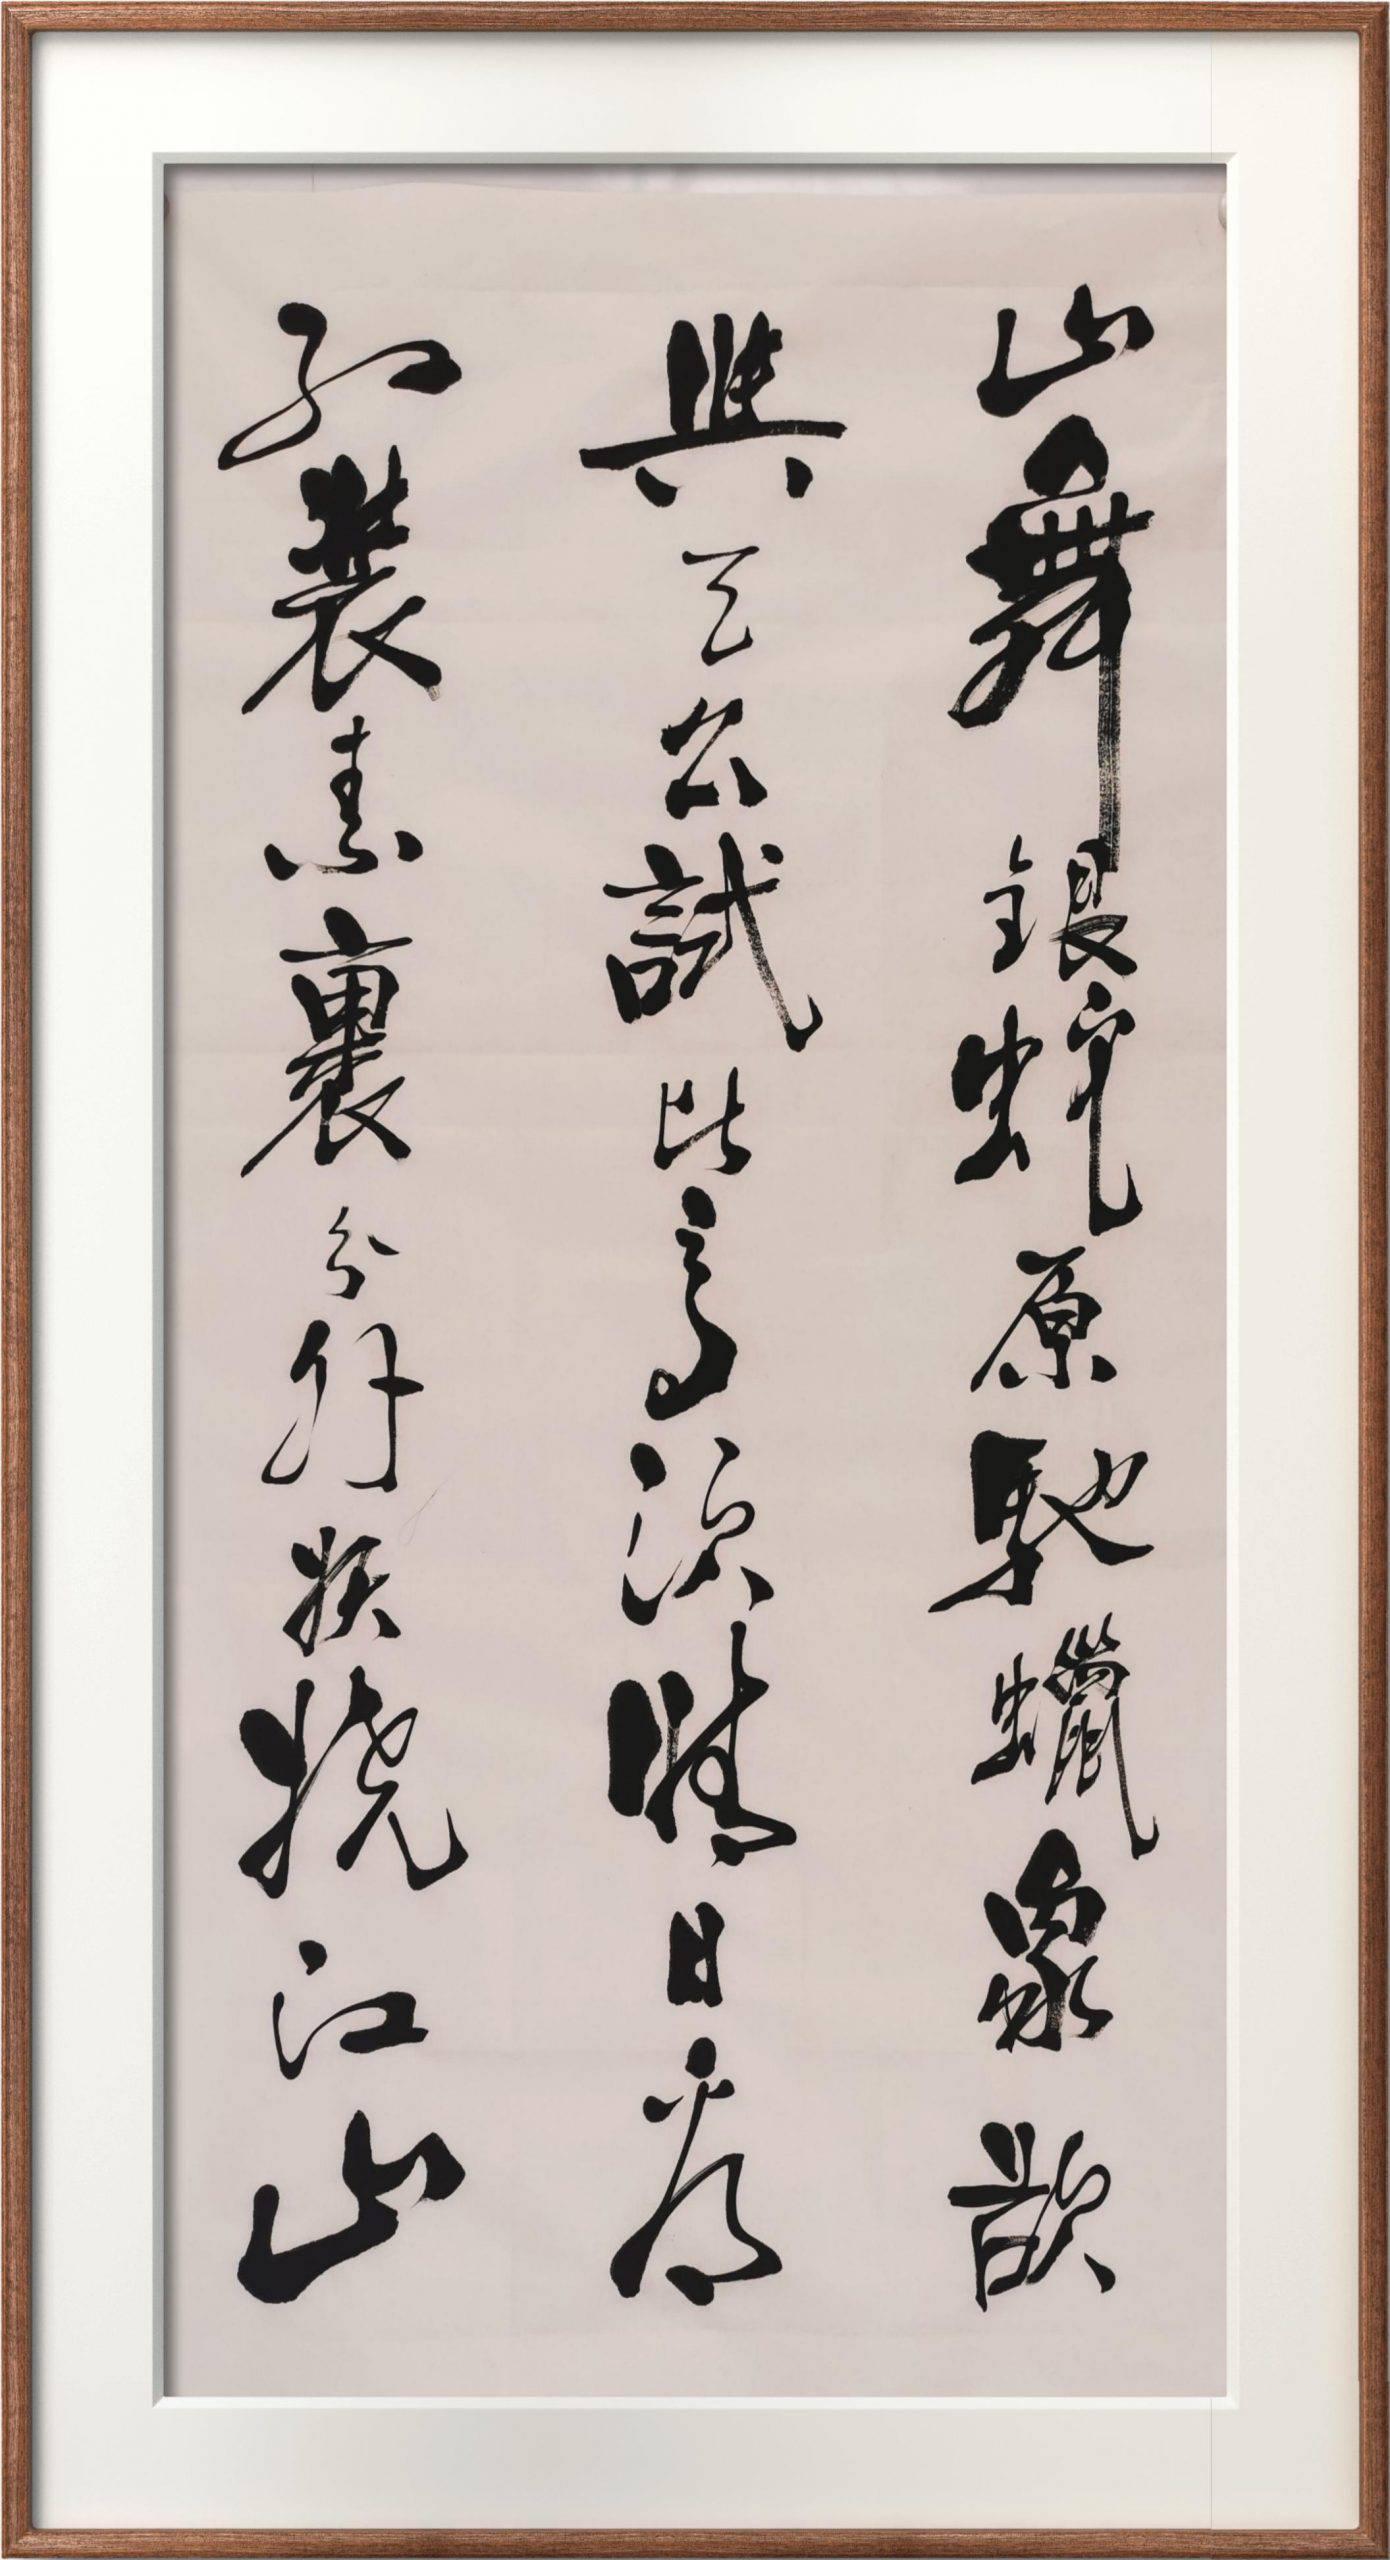 山舞銀蛇原馳蠟象欲
與天公試比高須晴日看
紅裝素裹分外妖嬈江山